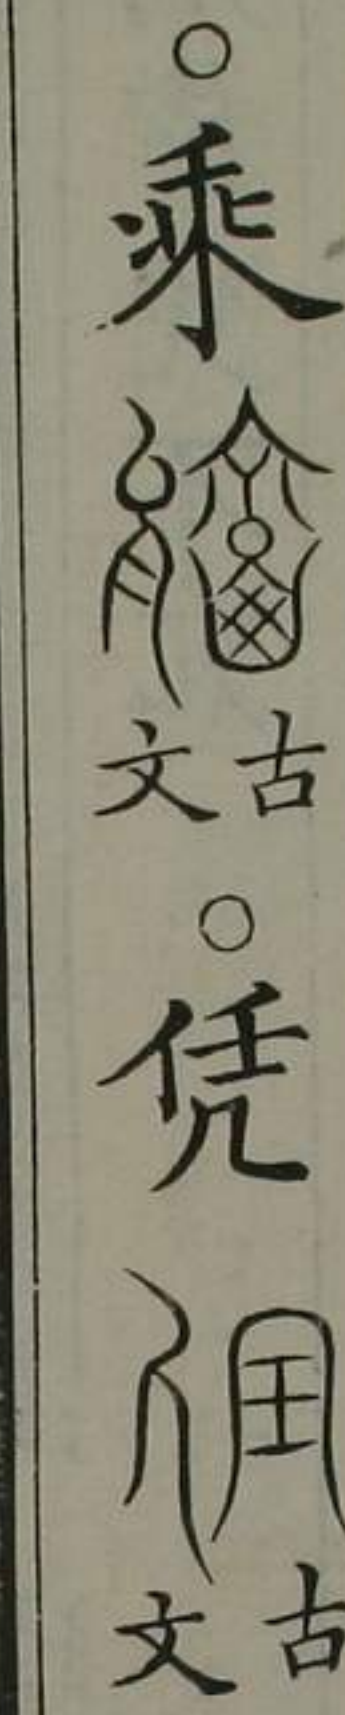 ○乘 古文○凭 古文